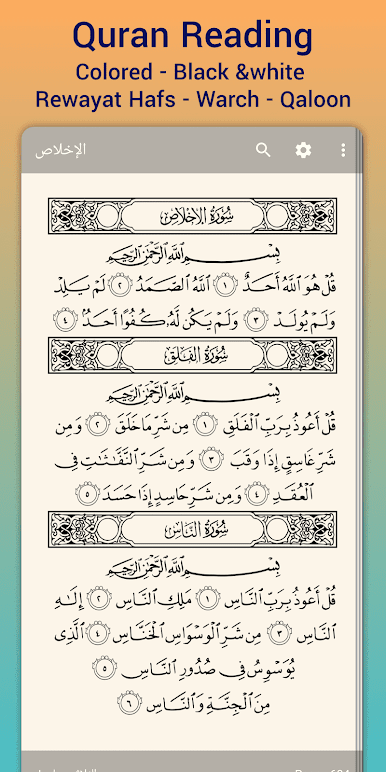 Quran Reading
Colored - Black &white
Rewayat Hafs - Warch - Qaloon
الإخلاص
سُورَةُ الإِخْلَاصِ
بِسْمِ اللَّهِ الرَّحْمَٰنِ الرَّحِيمِ
قُلْ هُوَ اللَّهُ أَحَدٌ ١ اللَّهُ الصَّمَدُ ٢ لَمْ يَلِدْ
وَلَمْ يُولَدْ ٣ وَلَمْ يَكُن لَّهُۥ كُفُوًا أَحَدٌۢ ٤
سُورَةُ الفَلَقِ
بِسْمِ اللَّهِ الرَّحْمَٰنِ الرَّحِيمِ
قُلْ أَعُوذُ بِرَبِّ الْفَلَقِ ١ مِن شَرِّ مَا خَلَقَ ٢ وَمِن
شَرِّ غَاسِقٍ إِذَا وَقَبَ ٣ وَمِن شَرِّ النَّفَّٰثَٰتِ فِى
الْعُقَدِ ٤ وَمِن شَرِّ حَاسِدٍ إِذَا حَسَدَ ٥
سُورَةُ النَّاسِ
بِسْمِ اللَّهِ الرَّحْمَٰنِ الرَّحِيمِ
قُلْ أَعُوذُ بِرَبِّ النَّاسِ ١ مَلِكِ النَّاسِ ٢ إِلَٰهِ
النَّاسِ ٣ مِن شَرِّ الْوَسْوَاسِ الْخَنَّاسِ ٤ الَّذِى
يُوَسْوِسُ فِى صُدُورِ النَّاسِ ٥
مِنَ الْجِنَّةِ وَالنَّاسِ ٦